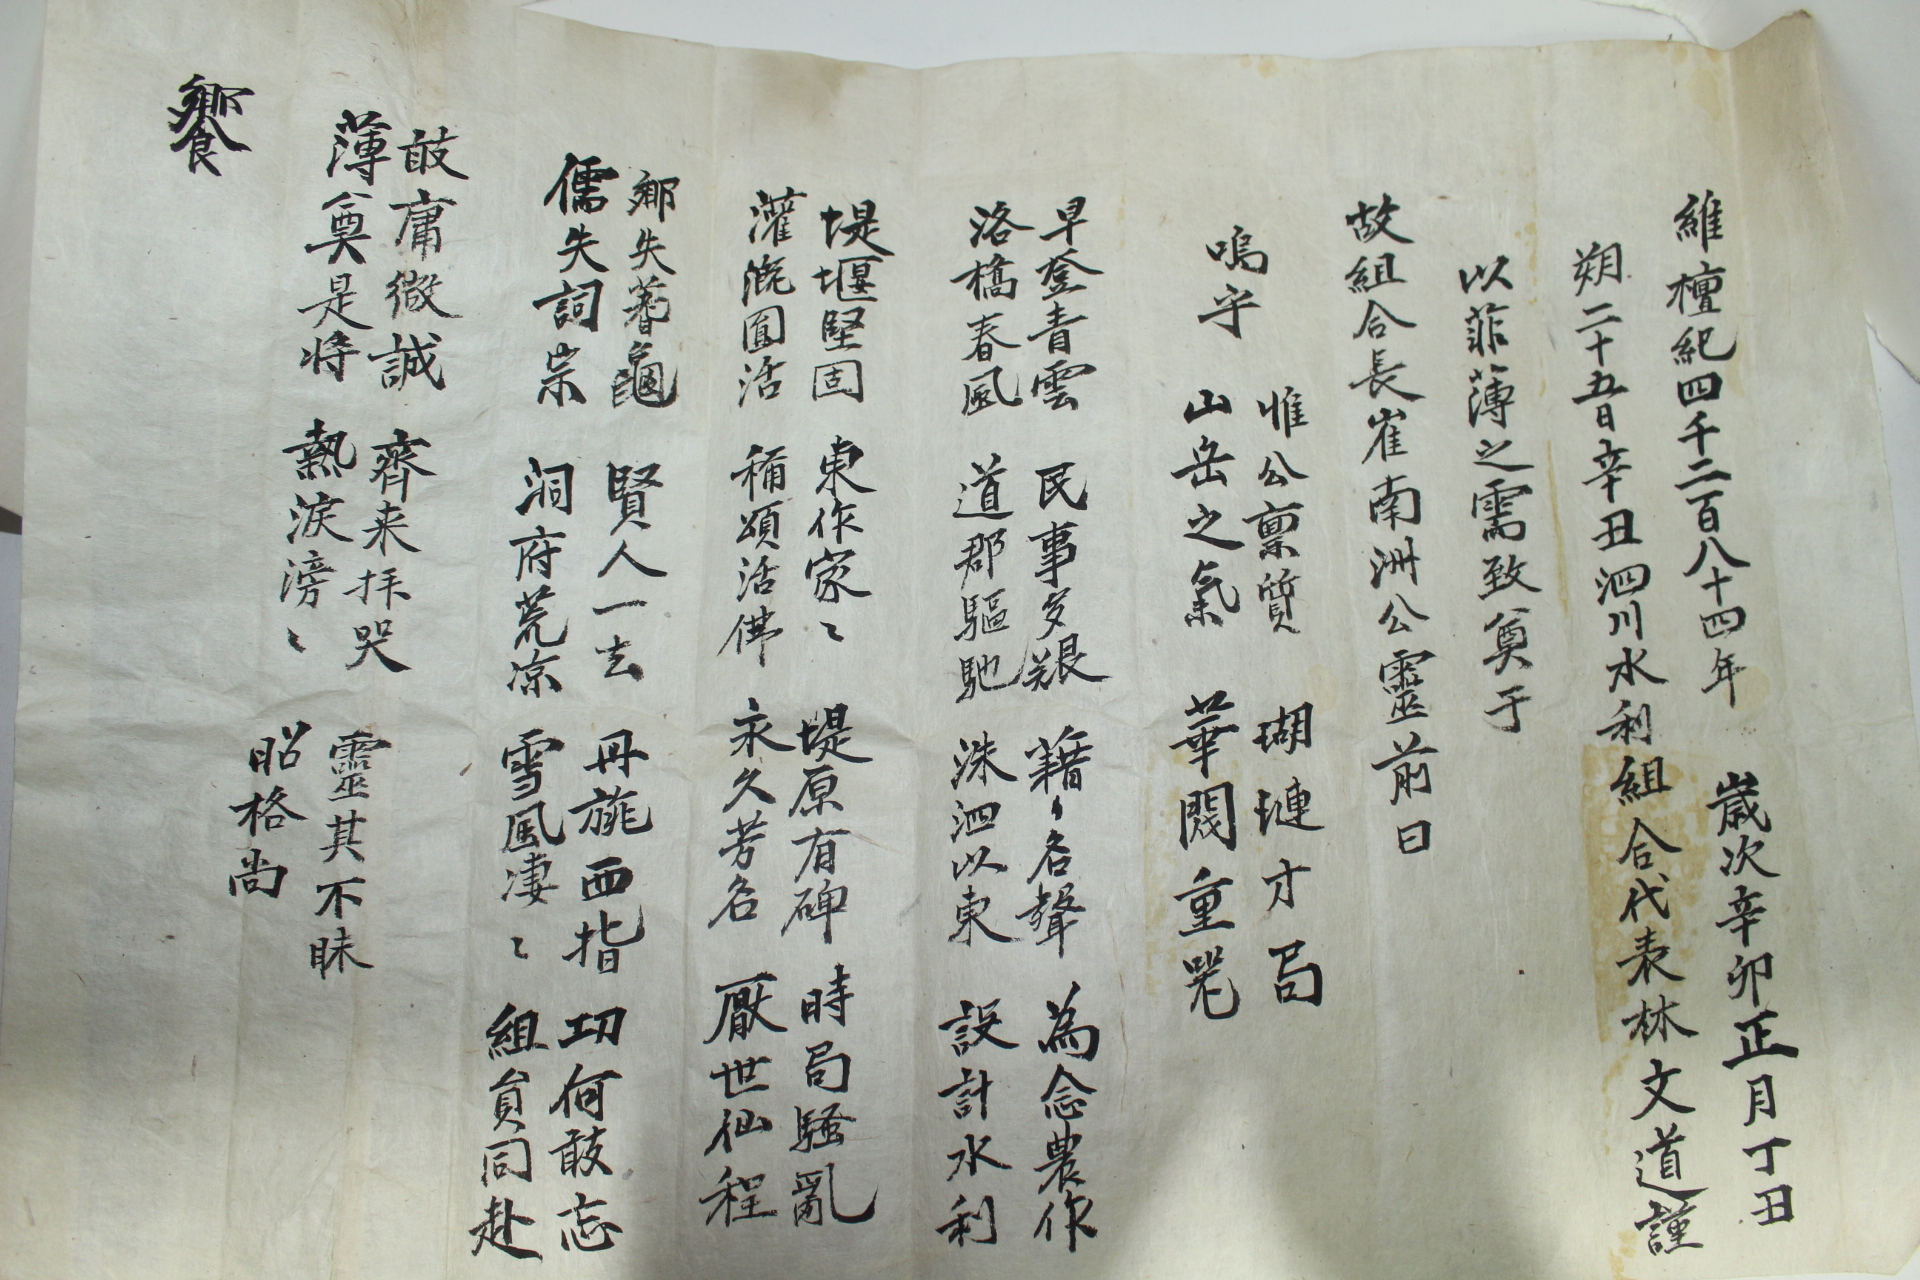 維檀紀四千二百八十四年 歲次辛卯正月丁丑
朔二十五日辛丑泗川水利組合代表林文道謹
以菲薄之需致奠于
故組合長崔南洲公靈前曰
嗚乎 惟公禀質 瑚璉才局
山岳之氣 華閥重望
早登青雲 民事多艱 藉〻名聲 為念農作
洛橋春風 道郡驅馳 洙泗以東 設計水利
堤堰堅固 東作家〻 堤原有碑 時局騷亂
灌漑圓活 稱頌活佛 永久芳名 厭世仙程
鄕失蓍龜 賢人一去 丹旐西指 功何敢忘
儒失詞宗 洞府荒凉 雪風凄〻 組員同赴
敢庸微誠 齊来拜哭 靈其不昧
薄奠是將 熱淚滂〻 昭格尚
饗